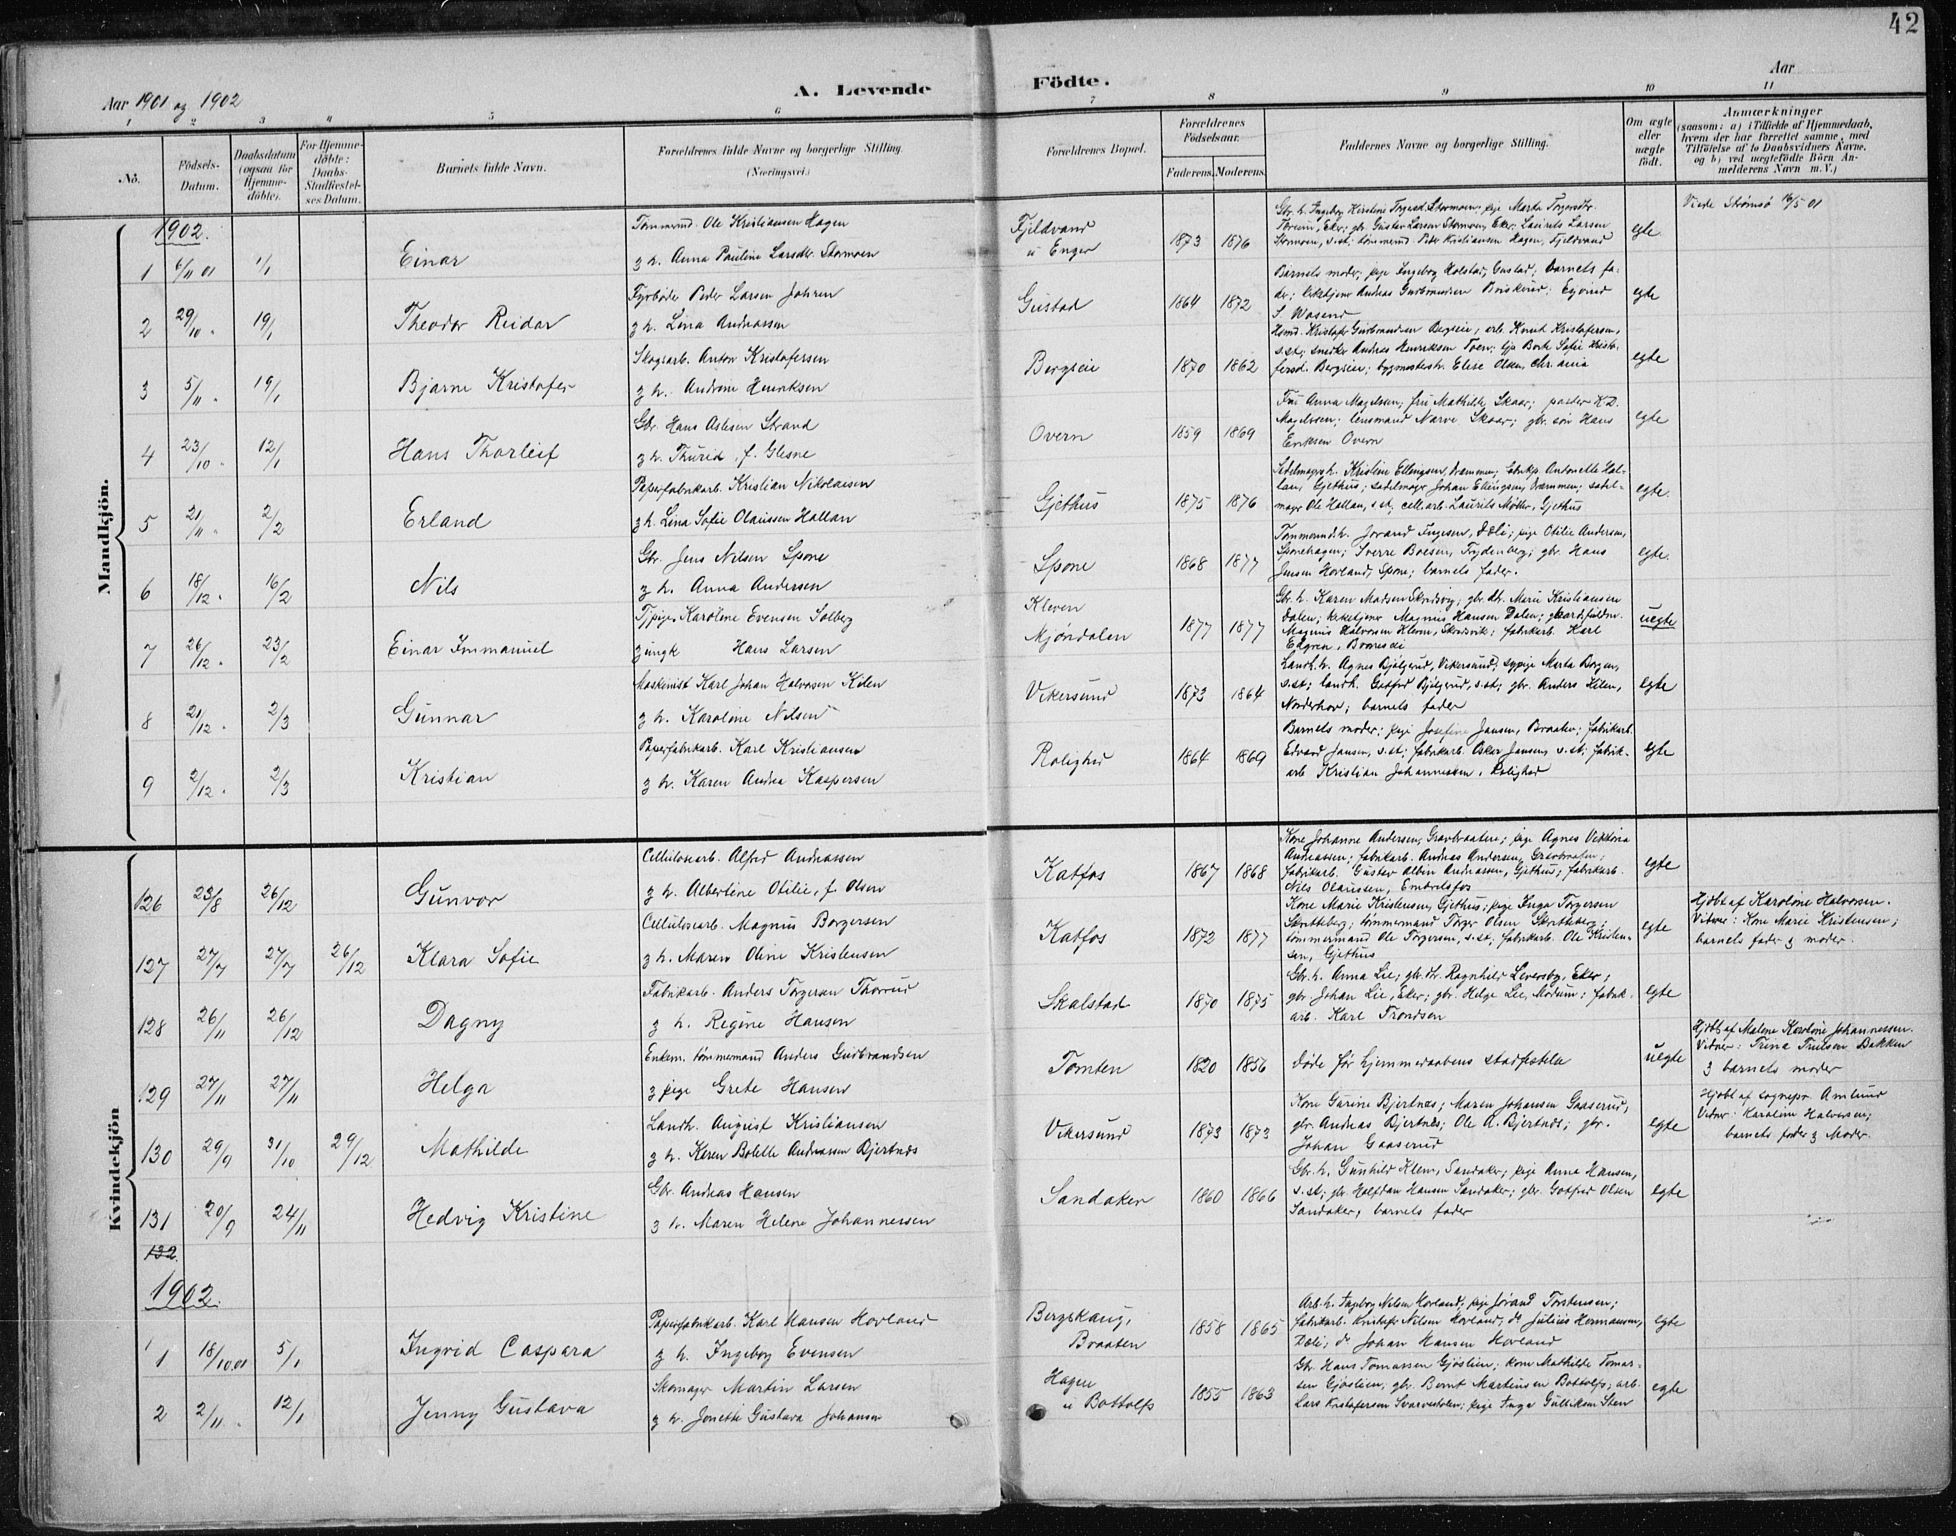 42
Aar 1901 og 1902
A. Levende
Födte.
Aar
1 2 3 4 5 6 7 8 9 10 11
No.
Födsels-
Datum.
Daabsdatum
(ogsaa for
Hjemme-
döbte).
For Hjemme-
döbte:
Daabs-
Stadfæstel-
ses Datum.
Barnets fulde Navn.
Forældrenes fulde Navne og borgerlige Stilling.
(Næringsvei.)
Forældrenes Bopæl.
Forældrenes
Födselsaar.
Faderens. Moderens.
Faddernes Navne og borgerlige Stilling.
Om ægte
eller
uægte
födt.
Anmærkninger
(saasom: a) i Tilfælde af Hjemmedaab,
hvem der har forrettet samme, med
Tilföielse af to Daabsvidners Navne,
og b) ved uægtefödte Börn An-
melderens Navn m. V.)
Mandkjön.
1902.
1 6/11 01 1/1 Einar
Tømmermd. Ole Kristiansen Hagen
g h. Anna Pauline Larsdtr. Stormoen
Fjeldvand
u Enger
1873 1876
Stormoen, s.st; tømmermd Peder Kristiansen Hagen, Fjeldvand
egte
Viede Strømsø 16/5 01
2 29/10 " 19/1 Theodor Reidar
Fyrbøder Peder Larsen Johren
g h. Lina Andreassen
Gustad
1864 1872
Barnets moder; pige Ingeborg Holstad, Gustad; barnets fa-
der; kirketjener Andreas Gudbrandsen Buskerud; Eyvind
egte
3 5/11 " 19/1 Bjarne Kristofer
Skogsarb. Anton Kristofersen
g h. Andrine Henriksen
Bergseie
1870 1862
Hsmd. Kristofer Gudbrandsen Bergseie; arb. Knut Kristofersen,
s.st; snedker Andreas Henriksen Toen; pige Borte Sofie Kristo-
fersd. Bergseie; bygmesterh. Elise Olsen, Chr.ania
egte
4 23/10 " 12/1 Hans Thorleif
Gbr. Hans Aslesen Strand
g h. Thurid, f. Glesne
Overn
1859 1869
Fru Anna Magelssen; fru Mathilde Skaar; pastor K.D.
Magelssen; lensmand Narve Skaar; gbr. søn Hans
Eriksen Overn
egte
5 21/11 " 2/2 Erland
Papirfabrikarb. Kristian Nikolaisen
g h. Lina Sofie Olaussen Hallan
Gjethus
1875 1876
Sadelmagerh. Kristine Ellingsen, Drammen; fabrikp. Antonette Hal-
lan, Gjethus; sadelmagr Johan Ellingsen, Drammen; sadel-
magr Ole Hallan, s.st; cell.arb. Laurits Møller, Gjethus
egte.
6 18/12 " 16/2 Nils
Gbr. Jens Nilsen Spone
g h. Anna Andersen
Spone
1868 1877
Tømmermd.h. Jorand Ingesen, Dæli; pige Otilie Andersen,
Sponehagen; Sverre Boesen, Frydenberg; gbr. Hans
Jensen Hovland, Spone; barnets fader.
egte.
7 26/12 " 23/2 Einar Immanuel
Tj.pige Karoline Evensen Solberg
g ungk Hans Larsen
Kleven
Mjøndalen
1877 1877
Gbr. h. Karen Madsen Skredsvig; gbr. dtr. Marie Kristiansen
Dalen; kirketjener Magnus Hansen Dalen; gbr.
Magnus Halvorsen Kleven, Skredsvik; fabrikarb. Karl
uegte
8 21/12 " 2/3 Gunnar
Maskinist Karl Johan Halvorsen Kilen
g h. Karoline Nilsen
Vikersund
1873 1864
Landh.h. Agnes Bjølgerud, Vikersund; sypige Marta Borgen,
s.st; landh. Gotfred Bjølgerud, s.st; gbr. Anders Kilen,
Norderhov; barnets fader
egte
9 2/12 " 2/3 Kristian
Papirfabrikarb. Karl Kristiansen
g h. Karen Andrea Kaspersen
Rolighed
1864 1869
Barnets moder; pige Josefine Jansen, Braaten; fabrikarb.
Edvard Jansen, s.st; fabrikarb. Oskar Jansen, s.st; fabrik-
arb Kristian Johannessen, Rolighed
egte
Kvindekjön
126 23/8 26/12 Gunvor
Cellulosearb. Alfred Andreassen
g h. Albertine Otilie, f. Olsen
Katfos
1867 1868
Kone Johanne Andersen, Granbraaten; pige Agnes Viktoria
Andreassen; fabrikarb. Andreas Andersen, Granbraaten;
fabrikarb. Gustav Albin Andreassen, Gjethus; fabrikarb.
Nils Olaussen, Embretsfos
egte
127 27/7 27/7 26/12 Klara Sofie
Cellulosearb. Magnus Borgersen
g h. Maren Oline Kristensen
Katfos
1872 1877
Kone Marie Kristensen, Gjethus; pige Inga Torgersen
Skretteberg; tømmermand Torger Olsen Skretteberg;
tømmermand Ole Torgersen, s.st; fabrikarb. Ole Kristen-
sen, Gjethus
egte
Hjdbt af Karoline Halvorsen.
Vidner: Kone Marie Kristensen;
barnets fader & moder.
128 26/11 26/12 Dagny
Fabrikarb. Anders Torgersen Thorrud
g h. Regine Hansen
Skalstad
1870 1875
Gbr. h. Anna Lie; gbr. dtr. Ragnhild Leversby, Eker;
gbr Johan Lie, Eker; gbr. Helge Lie, Modum; fabrik-
arb. Karl Trondsen
egte
129 27/11 27/11 Helga
Enkem. tømmermand Anders Gudbrandsen
g pige Grete Hansen
Tomten
1820 1856
Døde før hjemmedaabens stadfæstelse
uegte
Hjdbt af Malene Karoline Johannessen.
Vidner: Trina Trulsen Bakken
& barnets moder
130 29/9 31/10 29/12 Mathilde
Landh. August Kristiansen
g h. Karen Bolette Andreassen Bjertnæs
Vikersund
1873 1873
Kone Gurine Bjertnes; Maren Johansen Gaaserud,
gbr. Andreas Bjertnes; Ole A. Bjertnes; gbr.
Johan Gaaserud
egte
Hjdbt af sognepr. Amlund
Vidner: Karoline Halvorsen;
barnets fader & Moder.
131 20/9 24/11 Hedvig Kristine
Gbr. Andreas Hansen
g h. Maren Helene Johannessen
Sandaker
1860 1866
Gbr. h. Gunhild Klem, Sandaker; pige Anna Hansen,
s.st; gbr Halfdan Hansen Sandaker; gbr. Gotfred Olsen
Sandaker, barnets fader
egte
132.
1902.
1 18/10.01 5/1 Ingrid Caspara
Papirfabrikarb. Karl Hansen Hovland
g h. Ingeborg Evensen
Bergskaug,
Braaten
1858 1865
Arb.h. Ingeborg Nilsen Hovland; pige Jørand Torstensen;
fabrikarb. Kristofer Nilsen Hovland; do Julius Hermansen,
Dæli; do Johan Hansen Hovland
egte
2 2/11 " 12/1 Jenny Gustava
Skomager Martin Larsen
g h. Jonette Gustava Johansen
Hagen
u Bottolfs
1855 1863
Gbr. Hans Tomassen Gjøslien; kone Mathilde Tomas-
sen Gjøslien; gbr. Bernt Martinsen Bottolfs; arb.
Lars Kristofersen Svarvestolen; pige Inga Gulliksen Sten
egte